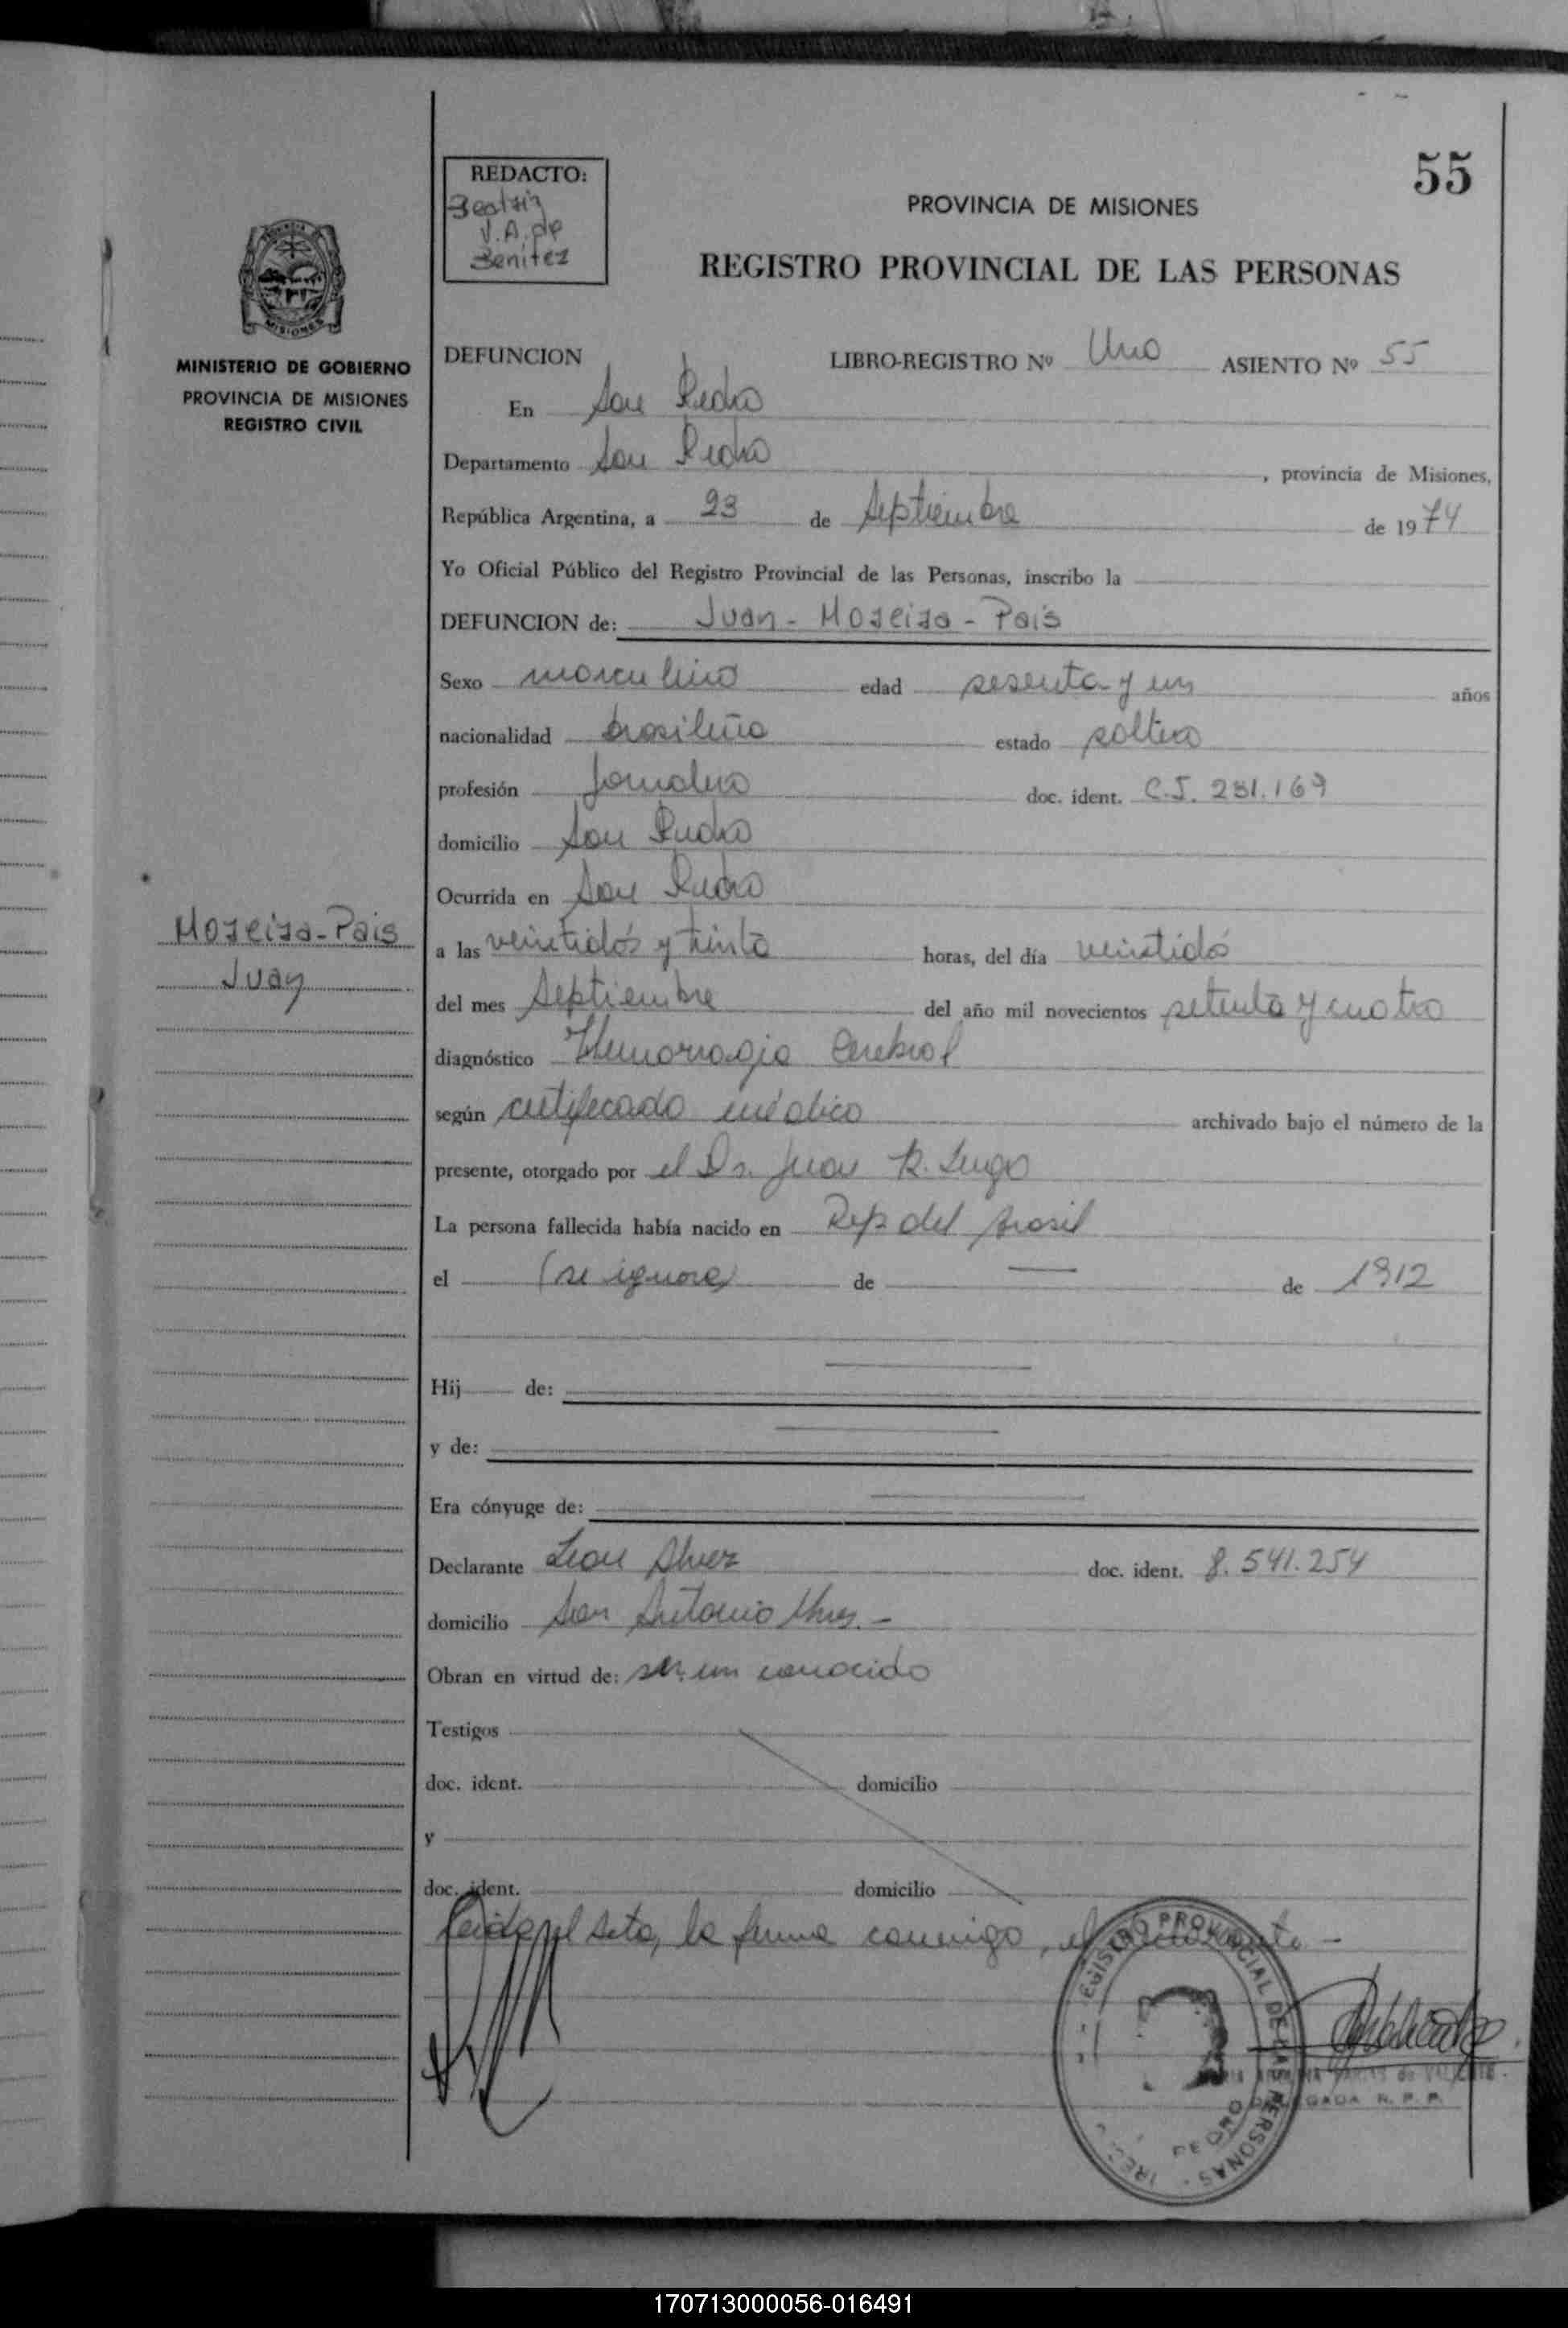 55
REDACTO:
Beatriz
V. A. de
Benitez
PROVINCIA DE MISIONES
REGISTRO PROVINCIAL DE LAS PERSONAS
MISIONES
MINISTERIO DE GOBIERNO
PROVINCIA DE MISIONES
REGISTRO CIVIL
DEFUNCION LIBRO-REGISTRO Nº Uno ASIENTO Nº 55
En San Pedro
Departamento San Pedro, provincia de Misiones,
República Argentina, a 23 de Septiembre de 1974
Yo Oficial Público del Registro Provincial de las Personas, inscribo la
DEFUNCION de: Juan - Moreira - Pais
Sexo masculino edad sesenta y un años
nacionalidad brasileña estado soltero
profesión Jornalero doc. ident. C.I. 231.169
domicilio San Pedro
Ocurrida en San Pedro
Moreira - Pais
Juan
a las veintidós y treinta horas, del día veintidó
del mes Septiembre del año mil novecientos setenta y cuatro
diagnóstico Hemorragia Cerebral
según certificado médico archivado bajo el número de la
presente, otorgado por el Dr. Juan R. Lugo
La persona fallecida había nacido en Rep del Brasil
el (se ignora) de — de 1912
Hij de: —
y de: —
Era cónyuge de: —
Declarante Leon Alvez doc. ident. 8.541.254
domicilio San Antonio Mnes. -
Obran en virtud de: ser un conocido
Testigos
doc. ident. domicilio
y
doc. ident. domicilio
Leida el Acta, la firma conmigo, el declarante -
REGISTRO PROVINCIAL DE LAS PERSONAS
PEDRO
DELEGADA R. P. P.
170713000056-016491